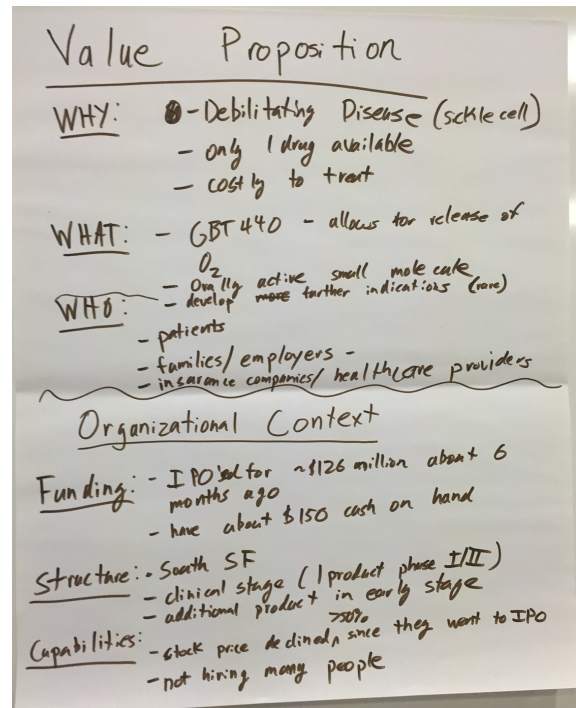 Value Proposition
WHY: - Debilitating Disease (sckle cell)
- only 1 drug available
- costly to treat
WHAT: - GBT 440 - allows for release of
O2
- Orally active small molecule
WHO: - develop more further indications (rare)
- patients
- families/employers -
- insurance companies/healthcare providers
Organizational Context
Funding: - IPO'ed for ~$126 million about 6
months ago
- have about $150 cash on hand
Structure: - South SF
- clinical stage (1 product phase I/II)
- additional product in early stage
>50%
Capabilities: - stock price declined, since they went to IPO
- not hiring many people